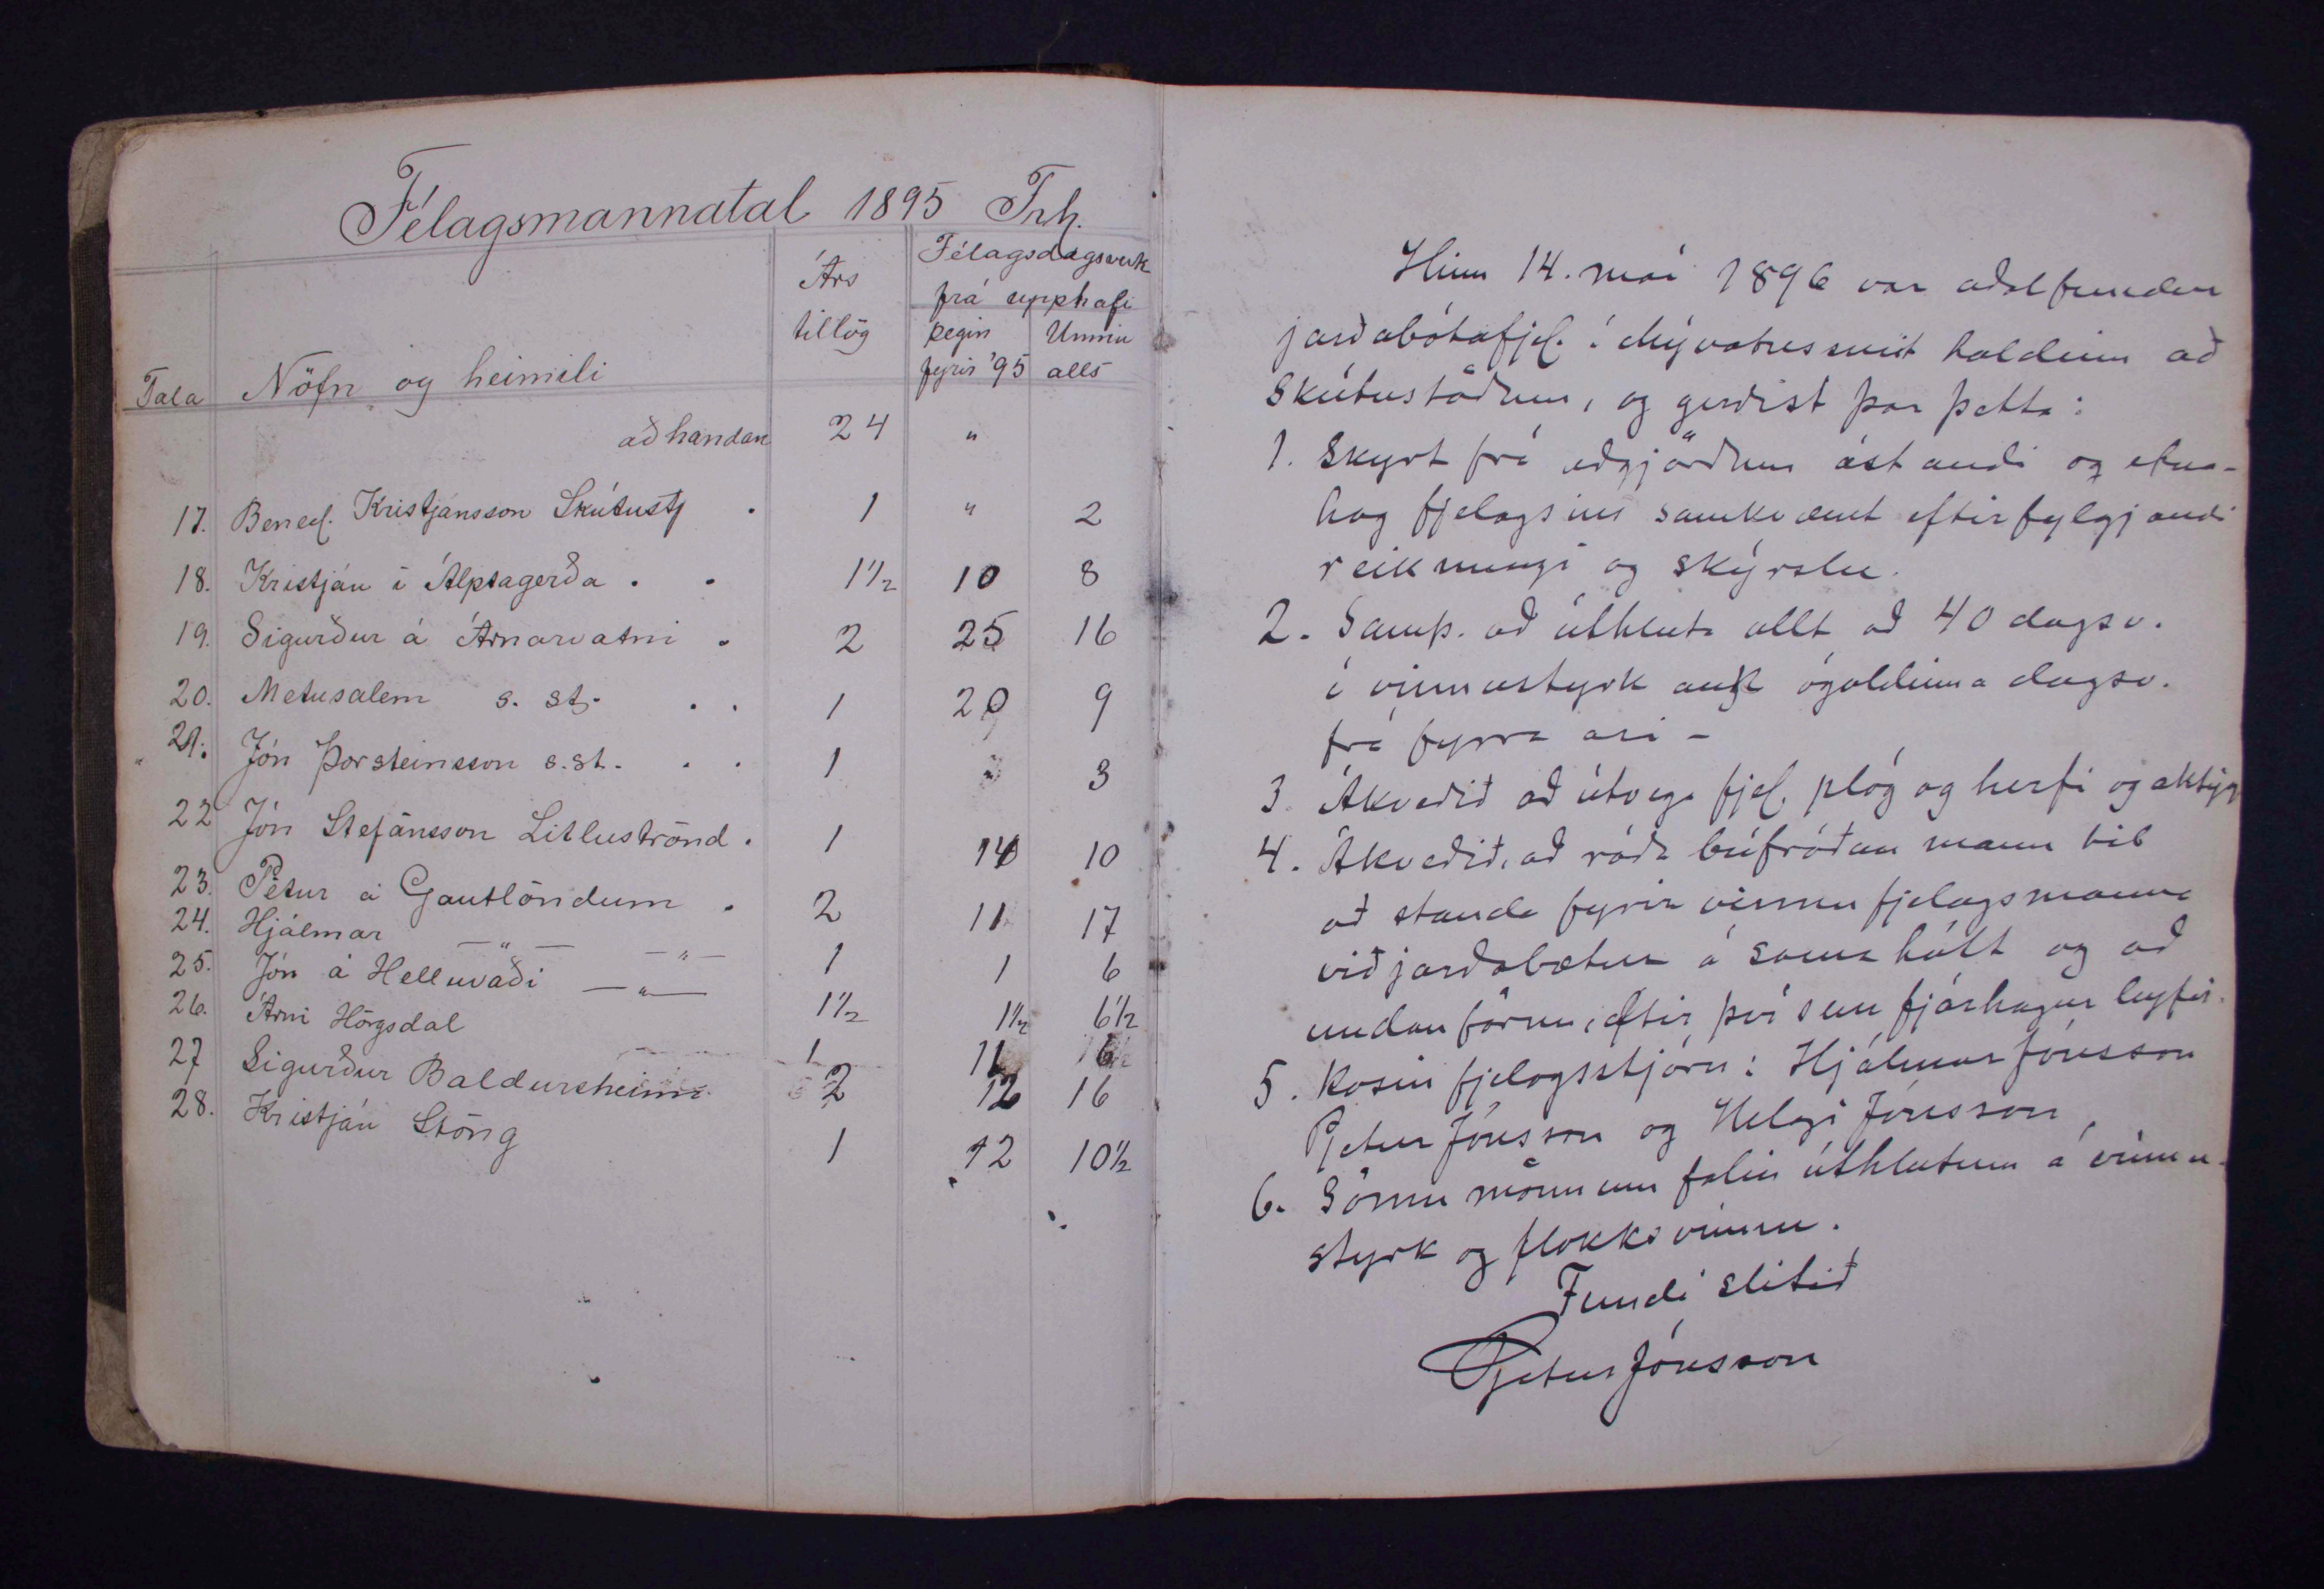 Félagsmannatal 1895 Frh.
Tala Nöfn og heimili Árs tillög Félagsdagsverk frá upphafi þegin fyrir '95 Unnin alls
að handan 24 "
17. Bened. Kristjánsson Skútustj . 1 " 2
18. Kristján í Álptagerða . . 1½ 10 8
19. Sigurður á Arnarvatni . 2 25 16
20. Metusalem s. st. . . 1 20 9
21. Jón Þorsteinsson s. st. . . 1 " 3
22 Jón Stefánsson Litluströnd . 1 14 10
23. Pétur á Gautlöndum . 2 11 17
24. Hjálmar — " — — " — 1 1 6
25. Jón á Helluvaði — " — 1½ 1½ 6½
26. Árni Hörgsdal 1 11 6
27 Sigurður Baldursheimi 2 12 16
28. Kristján Stöng 1 12 10½
Hinn 14. maí 1896 var aðalfundur
jarðabótafjel. í Mývatnssveit haldinn að
Skútustöðum, og gerðist þar þetta:
1. Skyrt frá aðgjörðum ástandi og efna-
hag fjelagsins samkvæmt eftirfylgjandi
reikningi og skýrslu.
2. Samþ. að úthluta allt að 40 dagsv.
í vinnustyrk auk ógoldinna dagsv.
frá fyrra ári –
3. Ákveðið að útvega fjel. plóg og herfi og aktýgi
4. Ákveðið, að ráða búfróðan mann til
að standa fyrir vinnu fjelagsmanna
við jarðabætur á sama hátt og að
undanförnu, eftir því sem fjárhagur leyfir.
5. Kosin fjelagsstjórn: Hjálmar Jónsson
Pjetur Jónsson og Helgi Jónsson
6. Sömu mönnum falin úthlutun á vinnu-
styrk og flokksvinnu.
Fundi slitið
Pjetur Jónsson